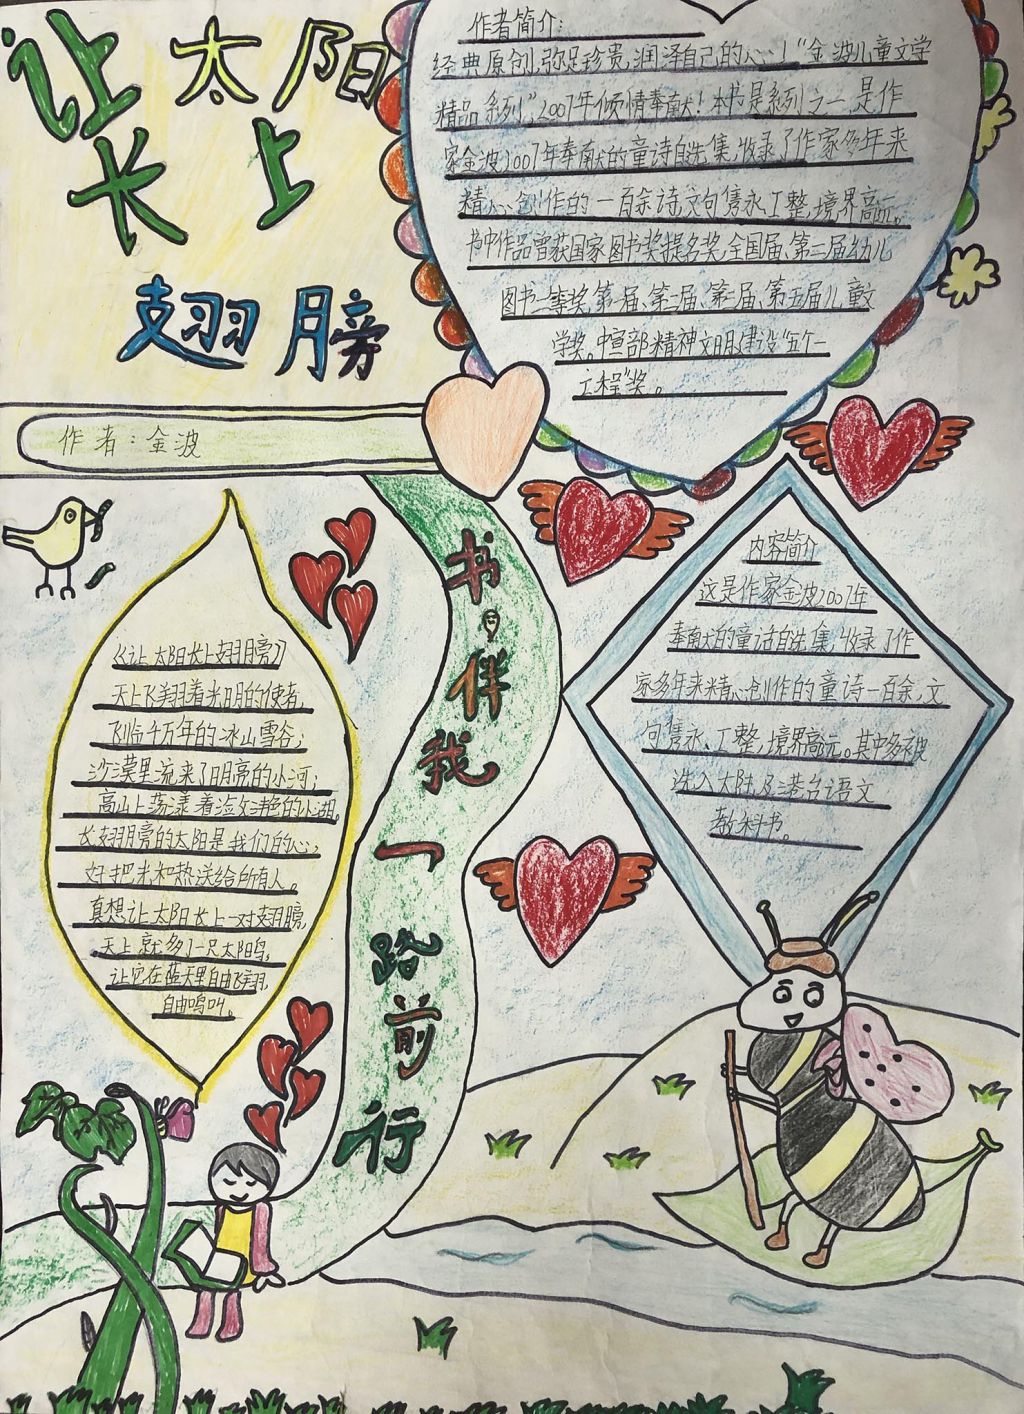 让太阳
长上
翅膀
作者简介：
经典原创，弥足珍贵，润泽自己的心！“金波儿童文学
精品系列”，2007年倾情奉献！本书是系列之一，是作
家金波2007年奉献的童诗自选集，收录了作家多年来
精心创作的一百余诗，文句隽永、工整，境界高远。
书中作品曾获国家图书奖提名奖，全国届、第二届幼儿
图书一等奖，第一届、第二届、第三届、第五届儿童文
学奖。中宣部精神文明建设“五个一
工程”奖。
作者：金波
书，伴我一路前行
《让太阳长上翅膀》
天上飞翔着光明的使者，
飞临千万年的冰山雪谷；
沙漠里流来了明亮的小河；
高山上荡漾着
色的小湖。
长翅膀的太阳是我们的心，
好把光和热送给所有人。
真想让太阳长上一对翅膀，
天上就多了一只太阳鸟，
让它在蓝天里自由飞翔，
自由鸣叫。
内容简介
这是作家金波2007年
奉献的童话自选集，收录了作
家多年来精心创作的童诗一百余，文
句隽永、工整，境界高远。其中多被
选入大陆及港台语文
教科书。